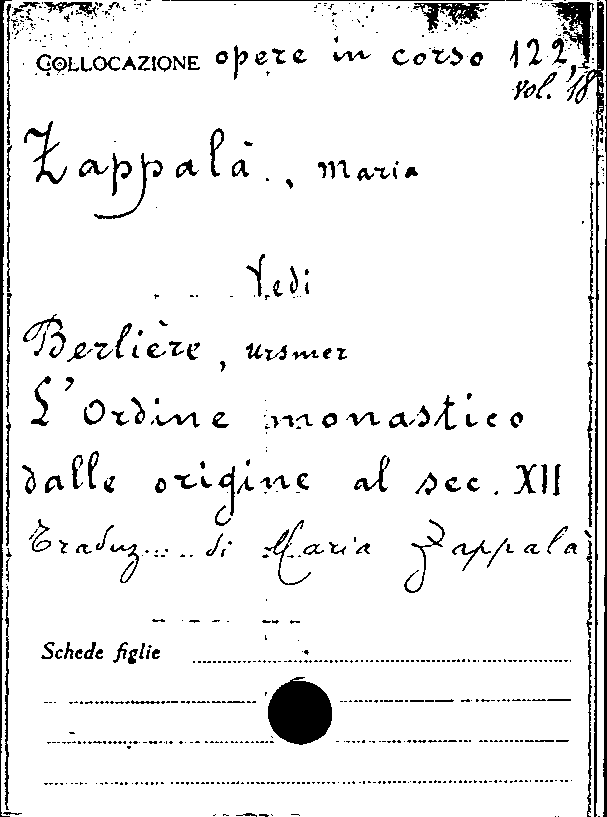 COLLOCAZIONE opere in corso 122,
vol. 18
Zappalà, Maria
Vedi
Berlière, Ursmer
L'Ordine monastico
dalle origine al sec. XII
Traduz.... di Maria Zappalà
Schede figlie